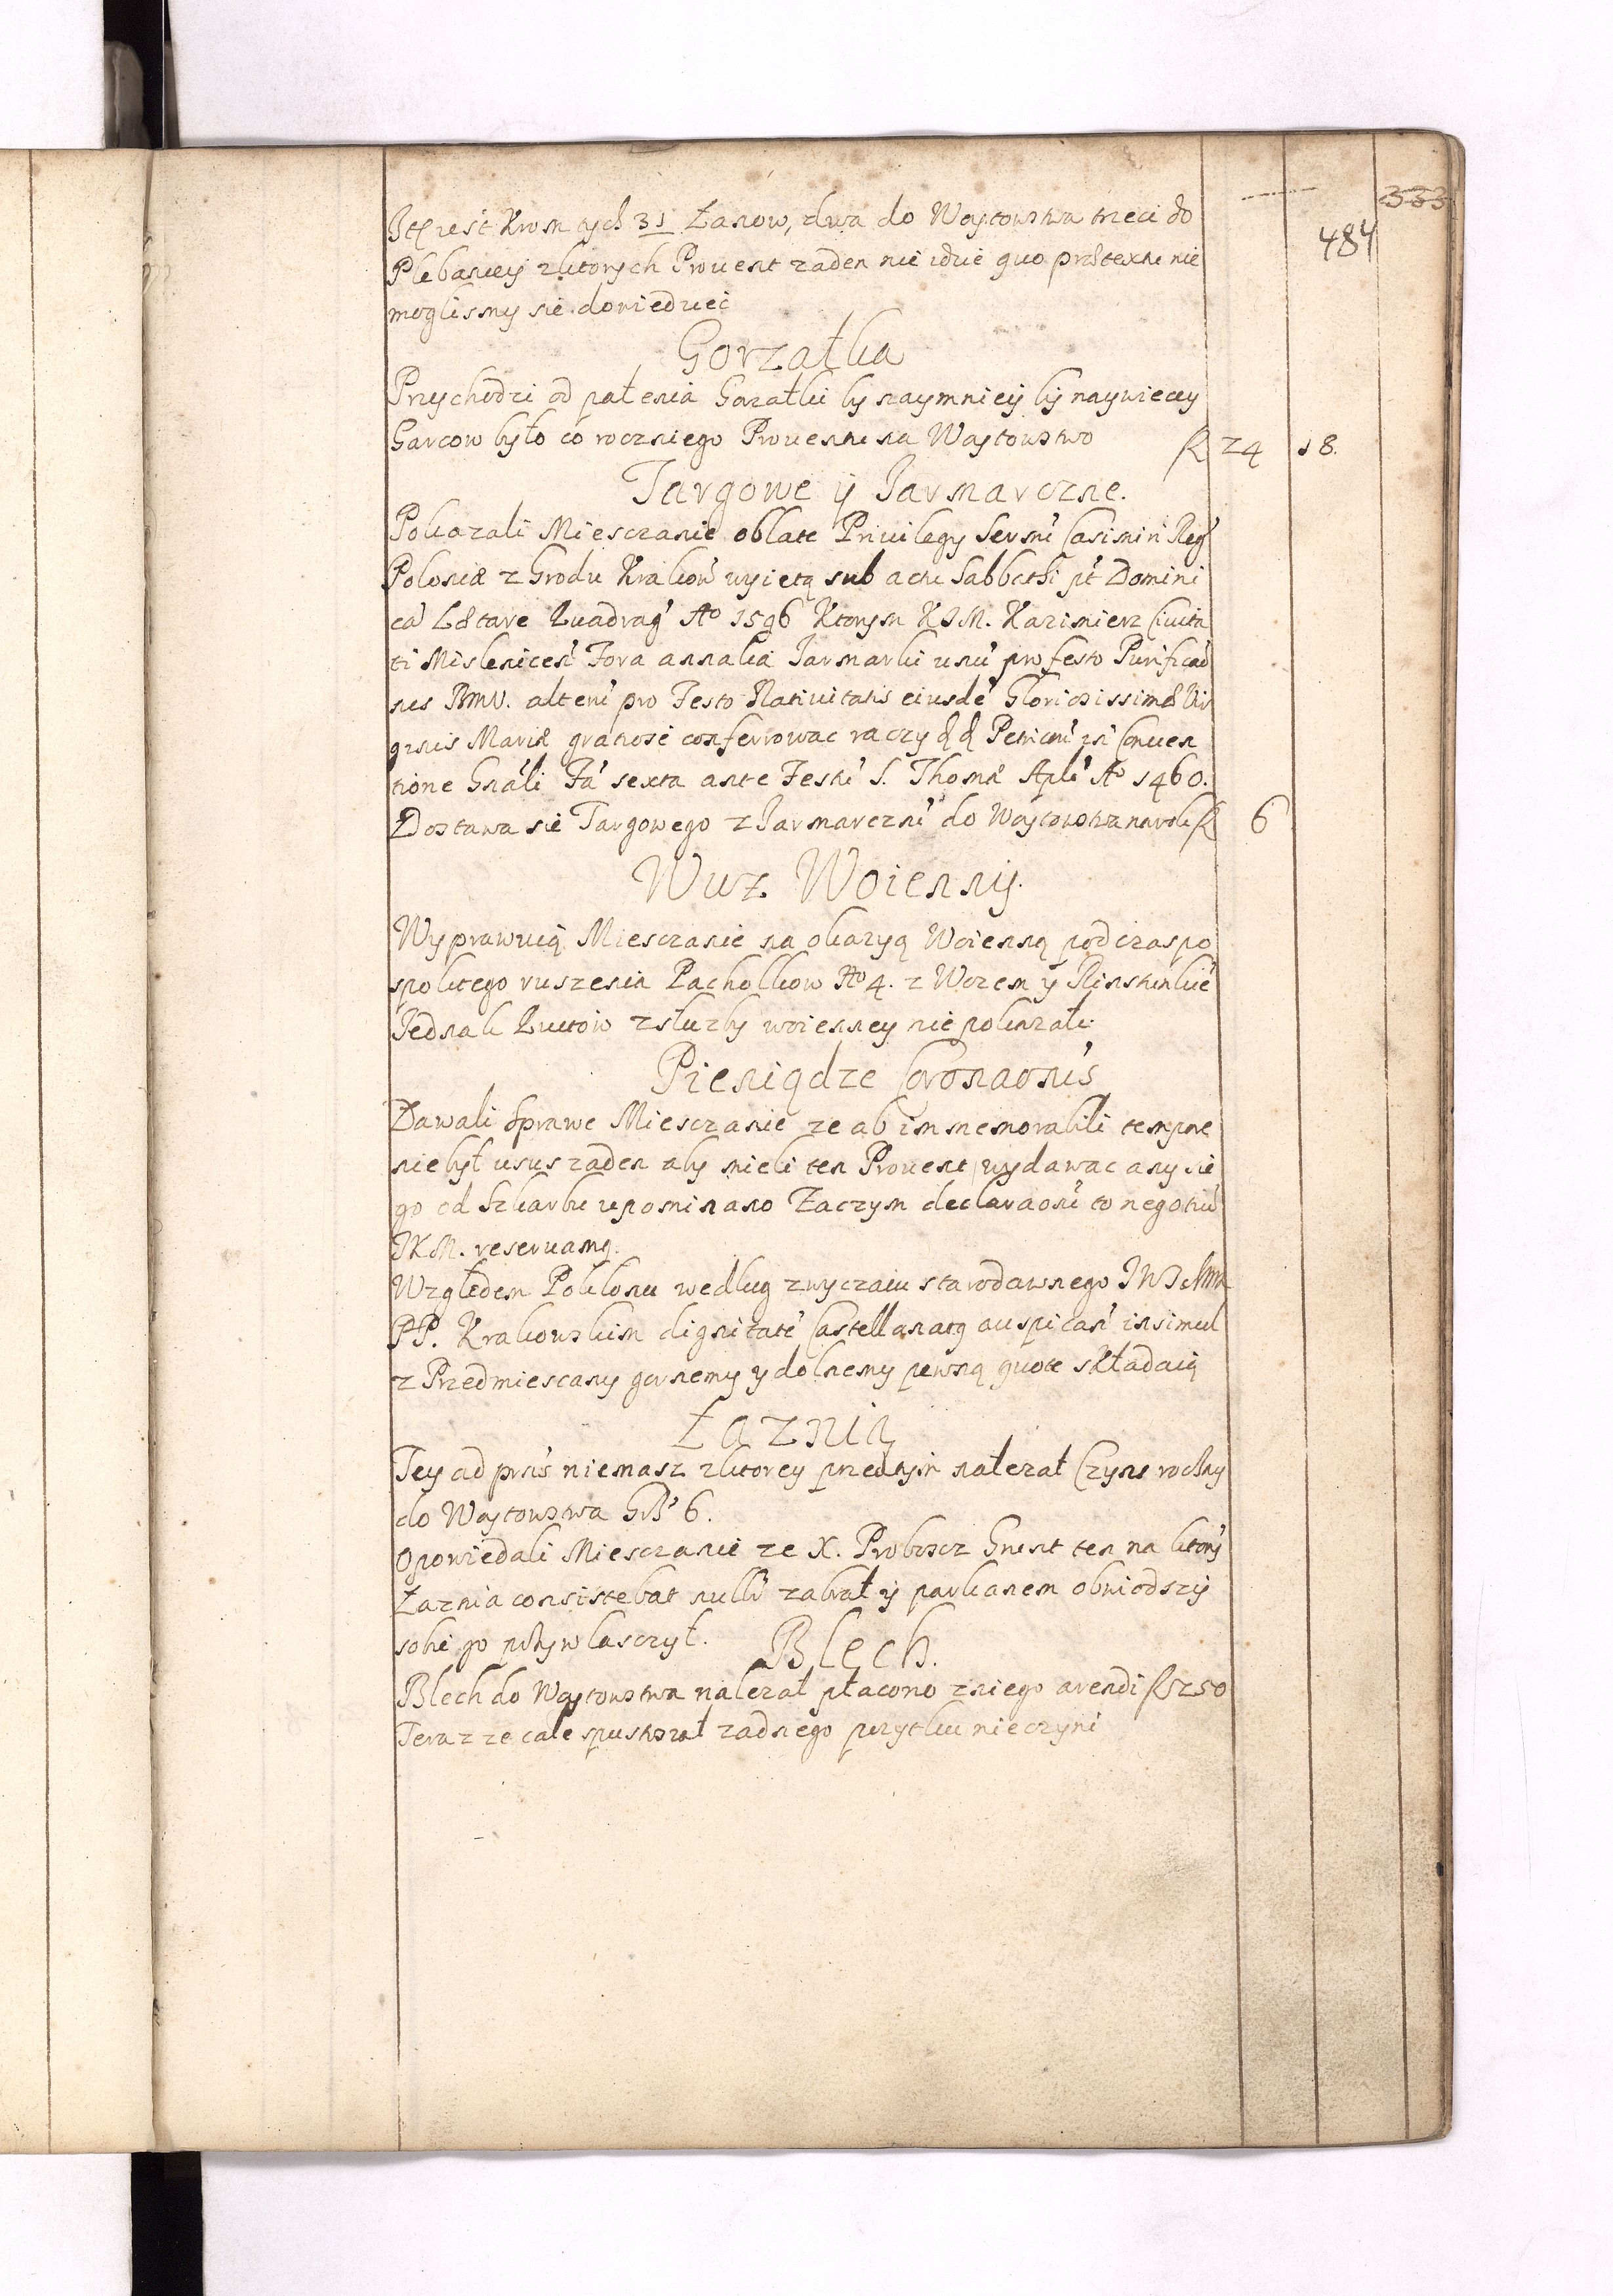 333
484
Itẽ iest Krom tych 31 Łanow, dwa do Woytowstwa trzeci do
Plebaniey z ktorych Prouent zaden nie idzie quo prætextu nie
moglismy sie dowiedziec
Gorzałka
Przychodzi od palenia Gorzałki by naymniey by naywiecey
Garcow było co roczniego Prouentu na Woytowstwo fl 24 18.
Targowe ÿ Jarmarczne.
Pokazali Miesczanie oblate Priuilegy Sersmi Casimiri Reg
Poloniæ z Grodu Krakow wyietą sub actu Sabbathi pt Domini
ca Lætare Quadrag Ao 1596 Ktorym KJM. Kazimierz Ciuita
ti Mislenicen Fora annalia Jarmarki unu pro festo Purificao
nis BMV. alteru pro Festo Natiuitatis eiusde Gloriosissimæ Vir
ginis Mariæ gratiose conferrowac raczy Petricou in Conuen
tione Gnali Fa sexta ante Festu S. Thomæ Apli Ao 1460.
Dostawa sie Targowego z Jarmarczni do Woytowstwa na rok fl 6
Wuz Woienny.
Wyprawuią Miesczanie na okazyą Woienną pod czas po
spolitego ruszenia Pachołkow No 4. z Wozem y Rinsztunkie
Jednak Kwitow z służby woienney nie pokazali.
Pieniądze Coronaonis
Dawali sprawe Miesczanie ze ab immemorabili tempore
nie był usus zaden aby mieli ten Prouent wydawac any sie
go od Skarbu upominano Zaczym declaraoni to negotiu
JKM. reseruamq.
Względem Pokłonu według zwyczaiu starodawnego JWJchm
PP. Krakowskim dignitate Castellanatq auspican insimul
z Przedmiescany gornemy y dolnemy pewną quote składaią
Łaznia
Tey ad prns niemasz z ktorey przedtym należał Czynsz roczny
do Woytowstwa Gr 6.
Opowiedali Miesczanie ze X. Proboscz Grunt ten na ktory
Łaznia consistebat zabrał y parkanem obwiodszy
sobie go przywlasczył.
Blech.
Blech do Woytowstwa należał płacono z niego arendi fl 250
Teraz ze cale spustoszał zadnego pozytku nieczyni